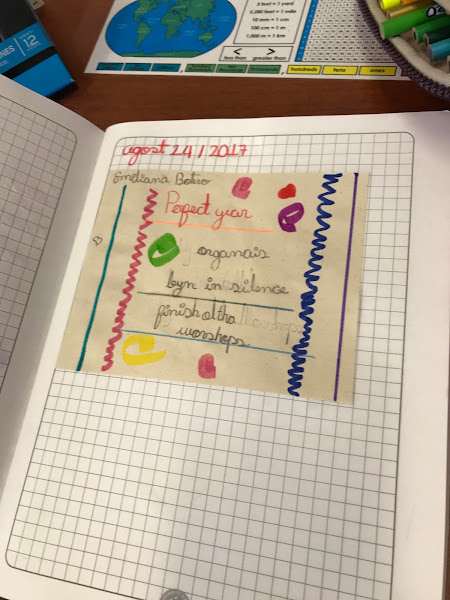 2 feet = 1 yard
5,280 feet = 1 mile
10 mm = 1 cm
100 cm = 1 m
1,000 m = 1 km
< >
less than greater than
hundreds tens ones
12
ugost 24 / 2017
Botero
Perfect year
organais
byn in silence
finish oltha
worshops